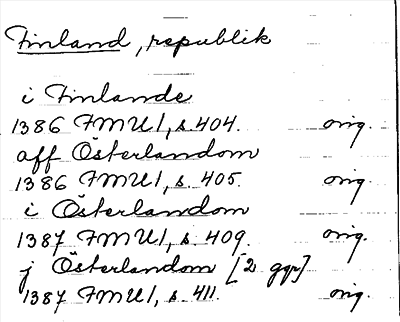 Finland, republik
i Finlande
1386 FMU 1, s. 404. orig.
aff Österlandom
1386 FMU 1, s. 405. orig.
i Österlandom
1387 FMU 1, s. 409. orig.
j Österlandom [2 ggr]
1387 FMU 1, s. 411. orig.